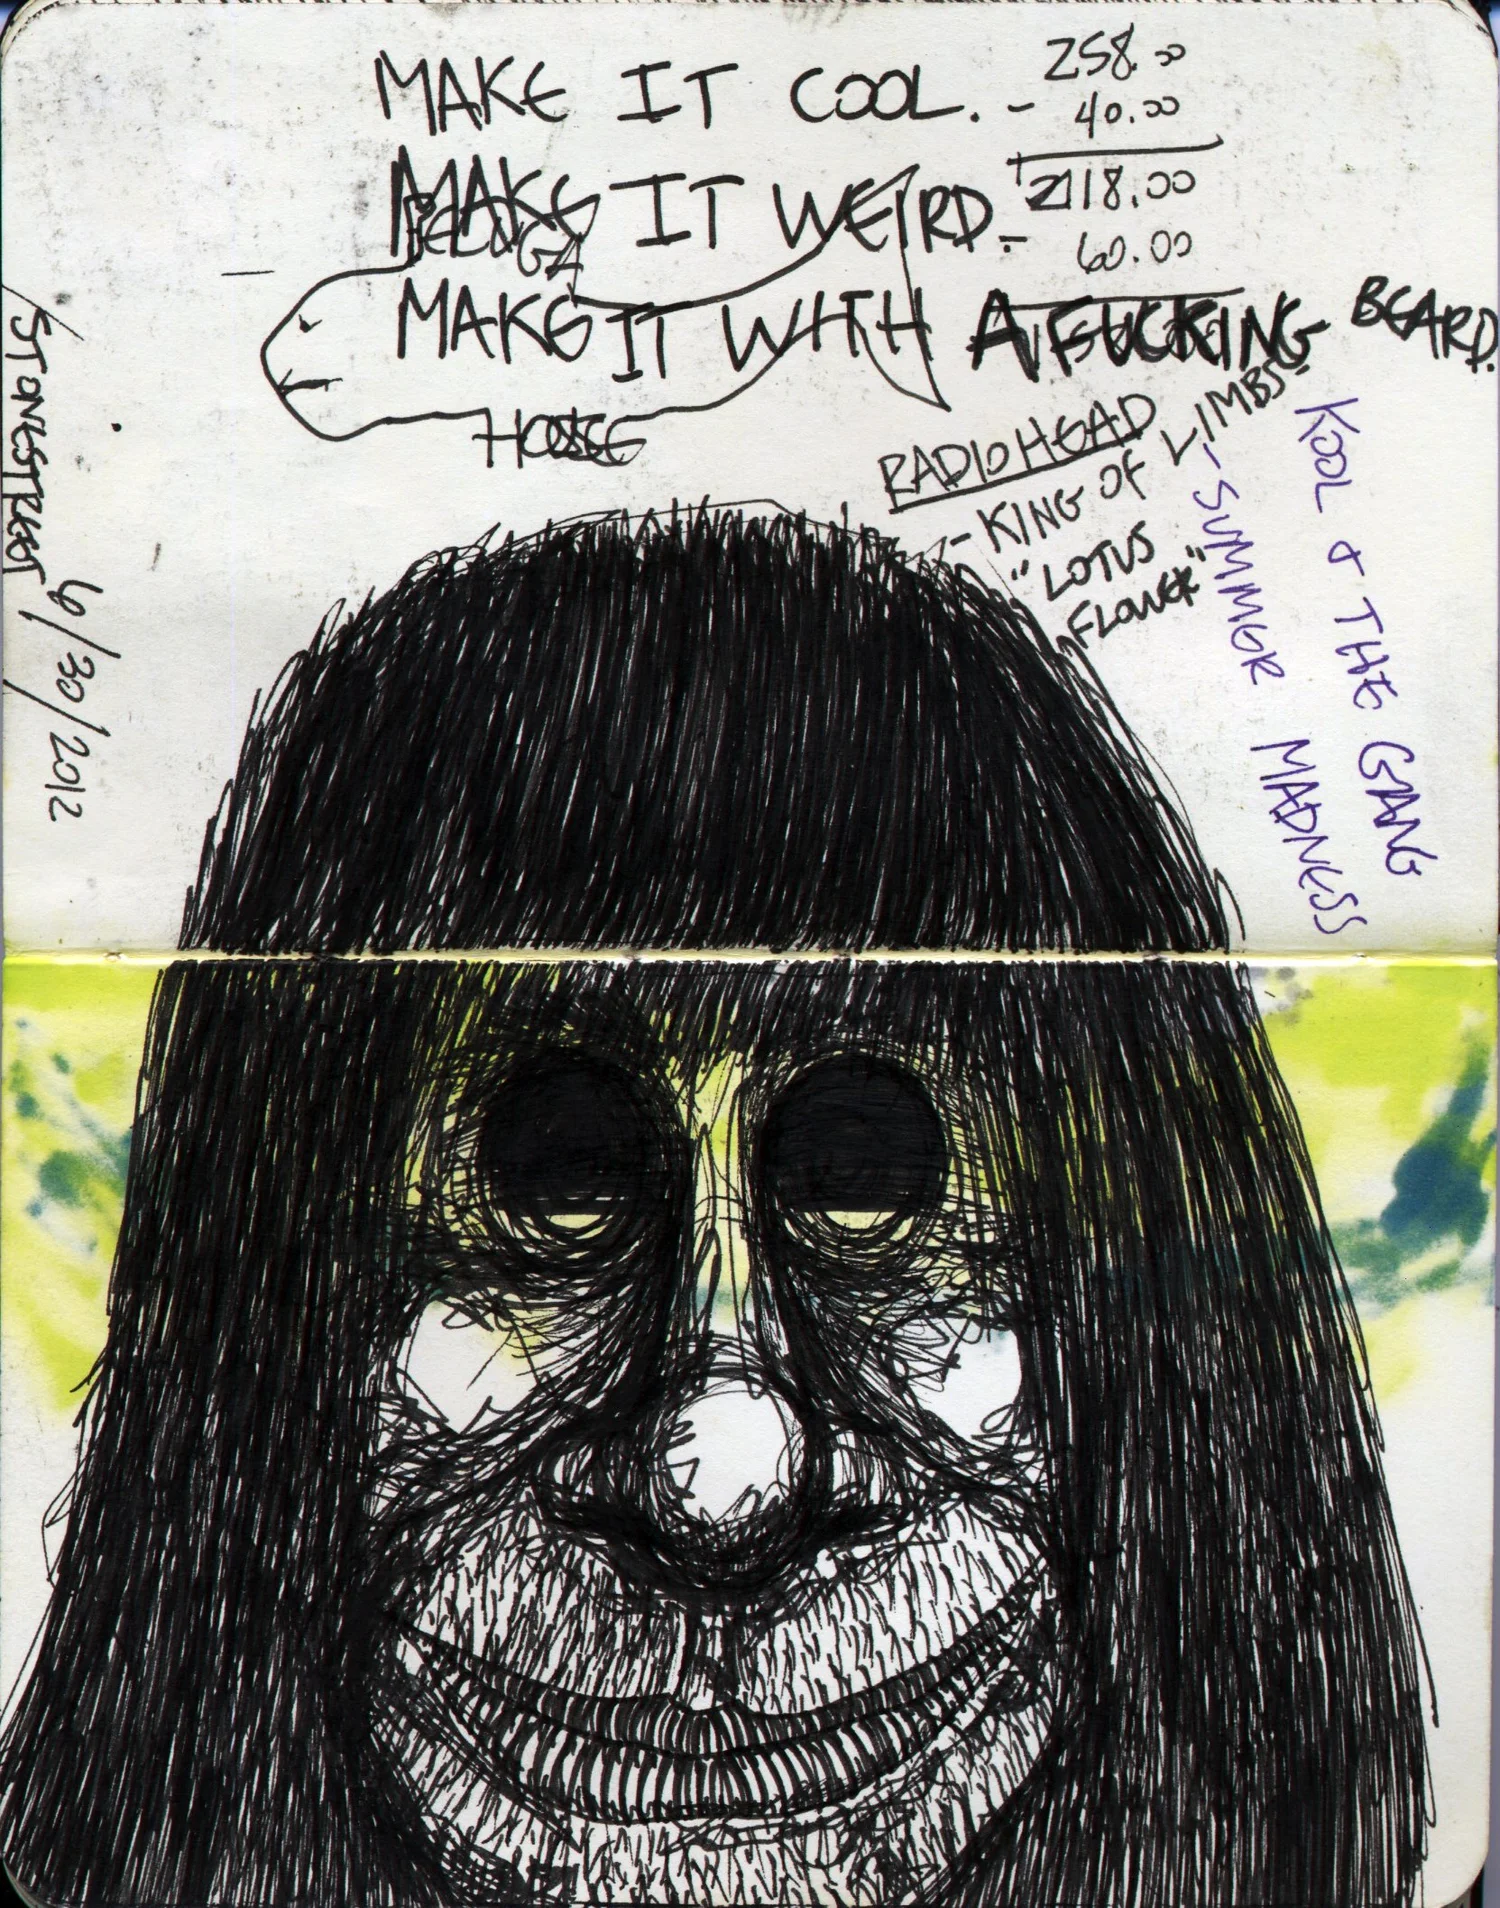 MAKE IT COOL.
MAKE IT WEIRD.
MAKE IT WITH A FUCKING BEARD.
- 258.00
40.00
218.00
- 60.00
BELUGA
HOUSE
RADIOHEAD
- KING OF LIMBS -
"LOTUS
FLOWER"
KOOL & THE GANG
- SUMMER MADNESS
STONESTREET
6/30/2012